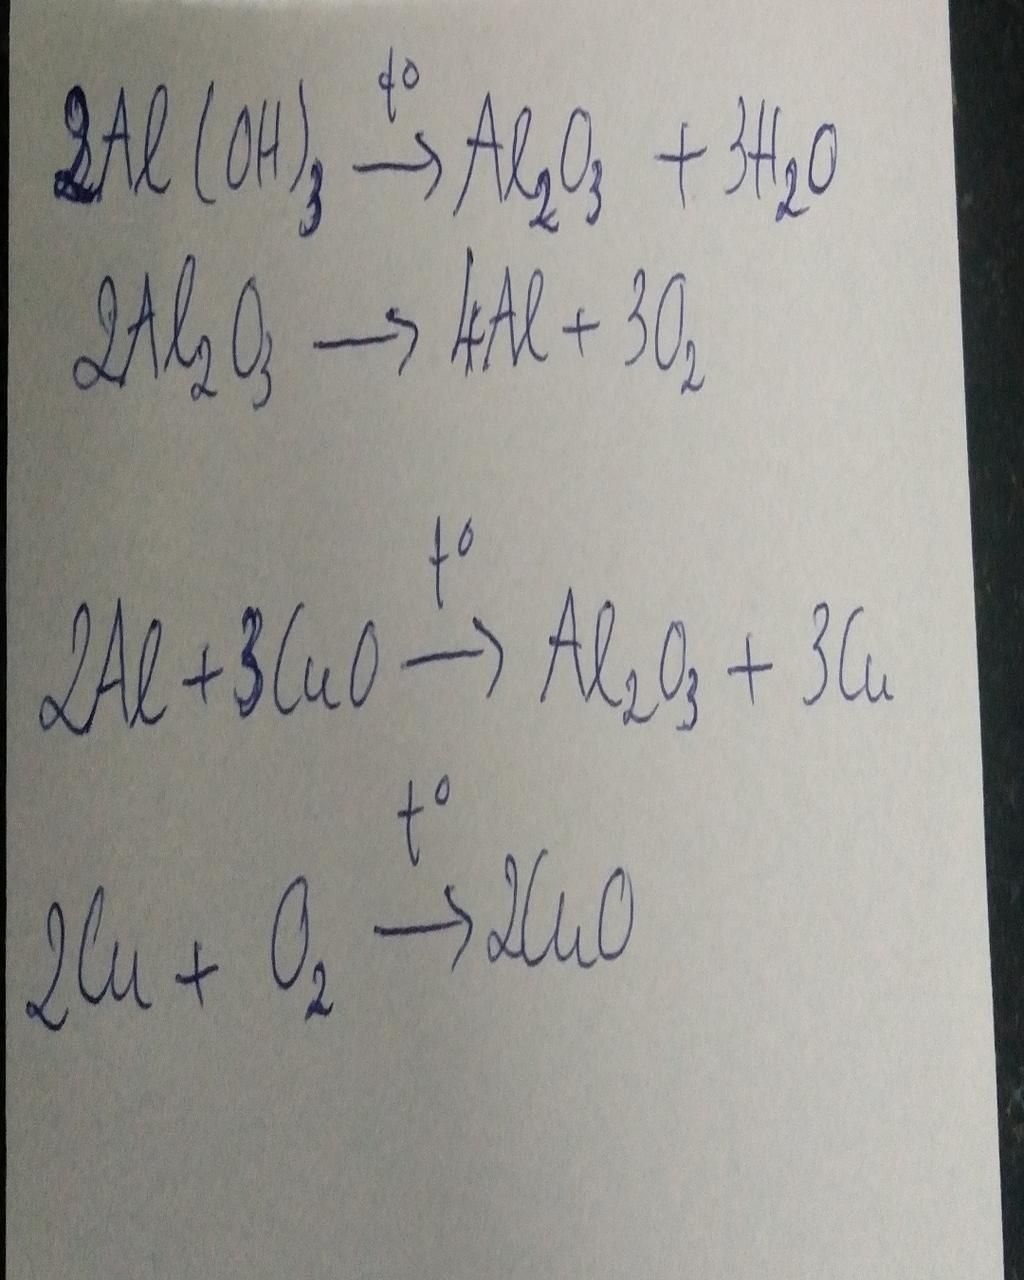 2Al(OH)₃ →(t°) Al₂O₃ + 3H₂O
2Al₂O₃ → 4Al + 3O₂
2Al + 3CuO →(t°) Al₂O₃ + 3Cu
2Cu + O₂ →(t°) 2CuO